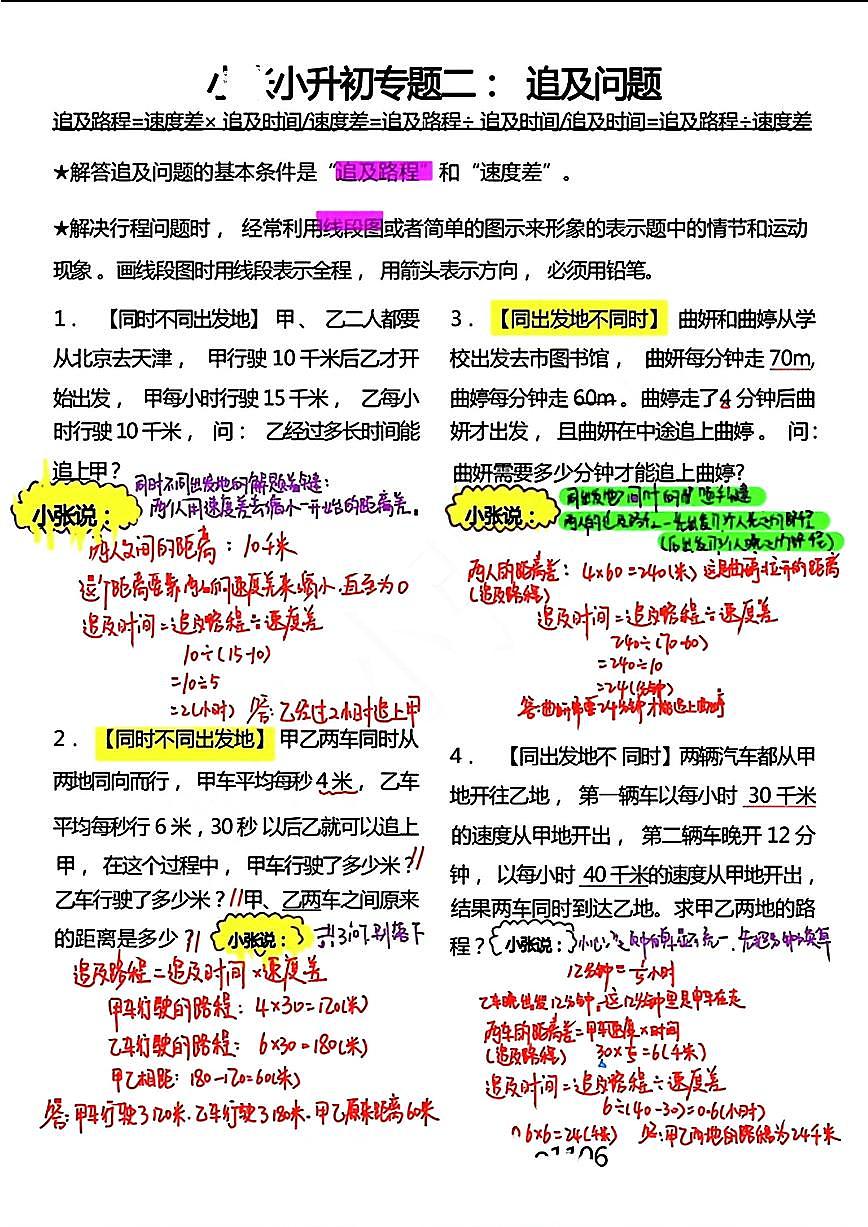 小 小升初专题二： 追及问题
追及路程=速度差× 追及时间/速度差=追及路程÷ 追及时间/追及时间=追及路程÷速度差
★解答追及问题的基本条件是“追及路程”和“速度差”。
★解决行程问题时， 经常利用线段图或者简单的图示来形象的表示题中的情节和运动
现象。画线段图时用线段表示全程， 用箭头表示方向， 必须用铅笔。
1． 【同时不同出发地】 甲、 乙二人都要
从北京去天津， 甲行驶 10 千米后乙才开
始出发， 甲每小时行驶 15 千米， 乙每小
时行驶 10 千米， 问： 乙经过多长时间能
追上甲？
小张说：
同时不同出发地的解题关键：
两人用速度差去缩小一开始的距离差。
两人之间的距离：10千米
这个距离要靠两人的速度差来缩小.直至为0
追及时间=追及路程÷速度差
10÷(15-10)
=10÷5
=2(小时) 答：乙经过2小时追上甲
2． 【同时不同出发地】 甲乙两车同时从
两地同向而行， 甲车平均每秒 4 米， 乙车
平均每秒行 6 米，30 秒 以后乙就可以追上
甲， 在这个过程中， 甲车行驶了多少米？
乙车行驶了多少米？甲、乙两车之间原来
的距离是多少？
小张说：
共3问,别落下
追及路程=追及时间×速度差
甲车行驶的路程：4×30=120(米)
乙车行驶的路程：6×30=180(米)
甲乙相距：180-120=60(米)
答：甲车行驶了120米.乙车行驶了180米.甲乙原来距离60米
3． 【同出发地不同时】 曲妍和曲婷从学
校出发去市图书馆， 曲妍每分钟走 70m,
曲婷每分钟走 60m 。曲婷走了4 分钟后曲
妍才出发， 且曲妍在中途追上曲婷 。 问：
曲妍需要多少分钟才能追上曲婷?
小张说：
两人的追及路程=先出发的人先走的路程
两人的距离差：4×60=240(米) 这是曲婷拉开的距离
(追及路程)
追及时间=追及路程÷速度差
240÷(70-60)
=240÷10
=24(分钟)
答：曲妍需要24分钟才能追上曲婷
4． 【同出发地不 同时】两辆汽车都从甲
地开往乙地， 第一辆车以每小时 30 千米
的速度从甲地开出， 第二辆车晚开 12 分
钟， 以每小时 40 千米的速度从甲地开出，
结果两车同时到达乙地。求甲乙两地的路
程？
小张说：
12分钟=1/5小时
乙车晚出发12分钟,这12分钟里是甲车在走
两车的距离差=甲车速度×时间
(追及路程) 30×1/5=6(千米)
追及时间=追及路程÷速度差
6÷(40-30)=0.6(小时)
答：甲乙两地的路程为24千米